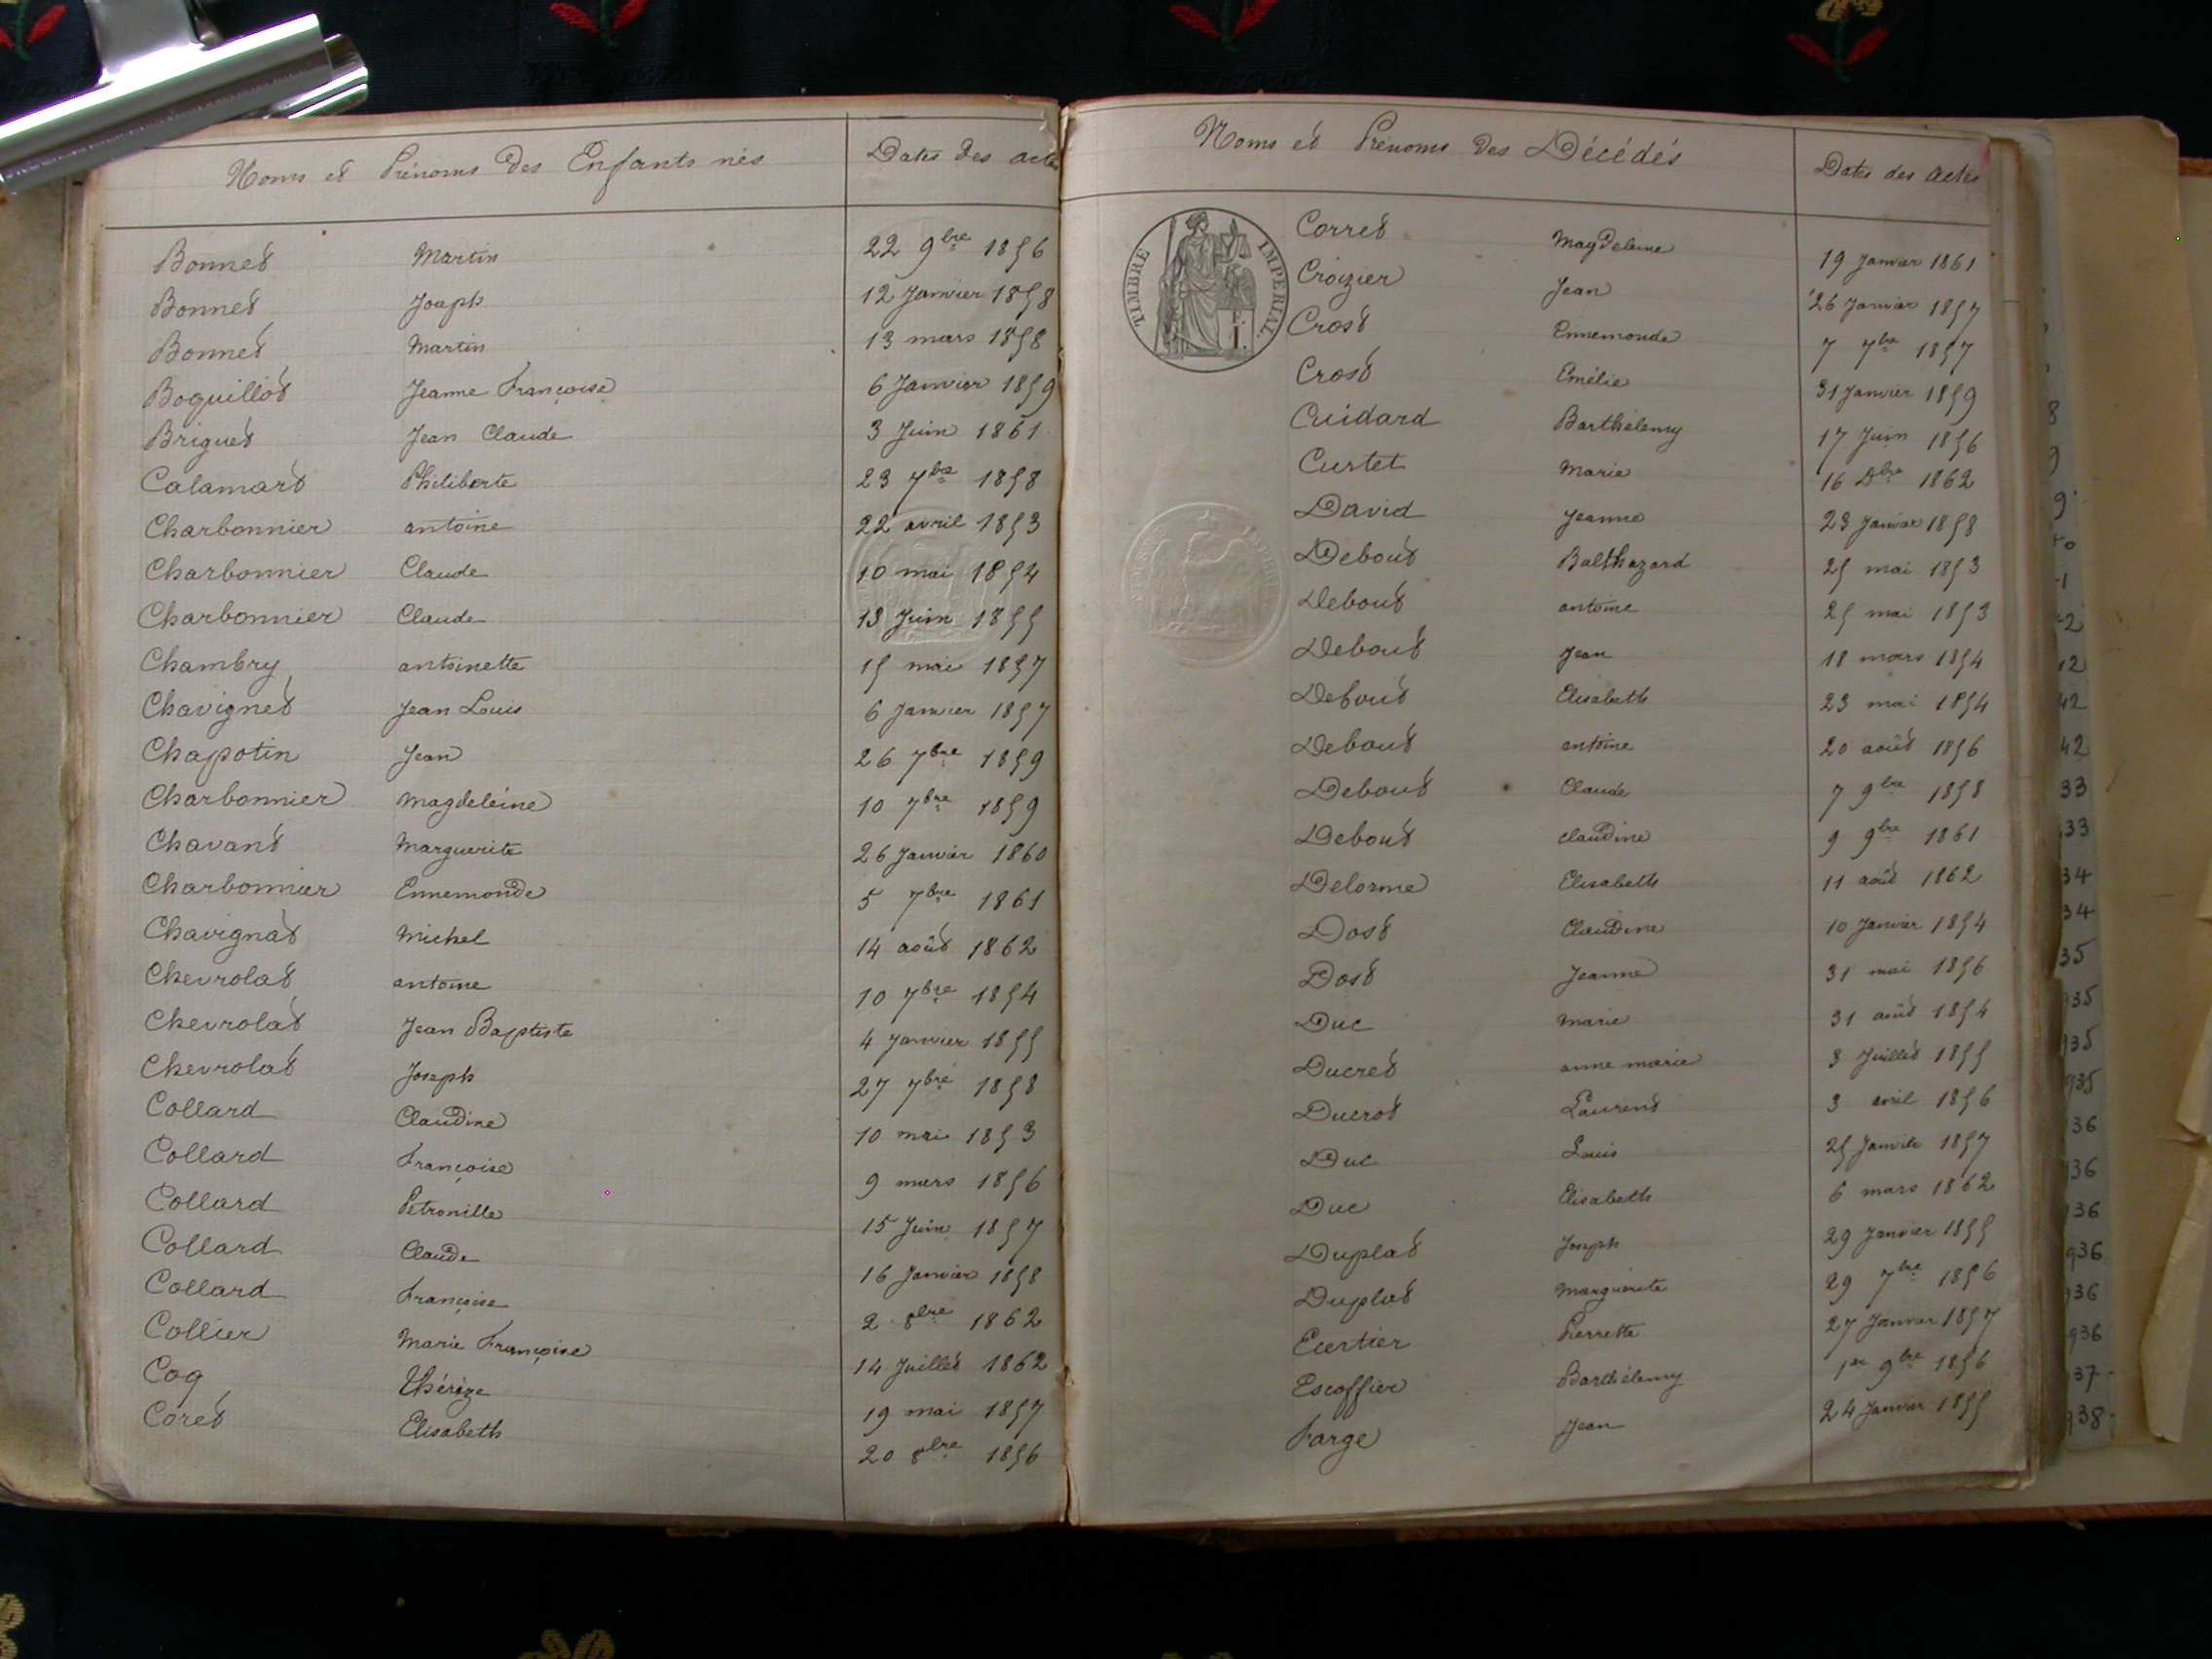 Noms et Prénoms des Enfants nés Dates des acte
Bonnet Martin 22 9bre 1856
Bonnet Joseph 12 Janvier 1858
Bonnet Martin 13 mars 1858
Boquillot Jeanne Françoise 6 Janvier 1859
Briguet Jean Claude 3 Juin 1861
Calamart Philiberte 23 7bre 1858
Charbonnier antoine 22 avril 1853
Charbonnier Claude 10 mai 1854
Charbonnier Claude 13 Juin 1855
Chambry antoinette 15 mai 1857
Chavignet Jean Louis 6 Janvier 1857
Chapotin Jean 26 7bre 1859
Charbonnier Magdeleine 10 7bre 1859
Chavant Marguerite 26 Janvier 1860
Charbonnier Ennemonde 5 7bre 1861
Chavignat Michel 14 août 1862
Chevrolat antoine 10 7bre 1854
Chevrolat Jean Baptiste 4 Janvier 1855
Chevrolat Joseph 27 7bre 1858
Collard Claudine 10 mai 1853
Collard Françoise 9 mars 1856
Collard Petronille 15 Juin 1857
Collard Claude 16 Janvier 1858
Collard Françoise 2 8bre 1862
Collier Marie Françoise 14 Juillet 1862
Coq Thérèze 19 mai 1857
Coret Elisabeth 20 8bre 1856
Noms et Prénoms des Décédés Dates des actes
TIMBRE IMPERIAL
Corret Magdeleine 19 Janvier 1861
Croizier Jean 26 Janvier 1857
Crost Ennemonde 7 7bre 1857
Crost Emélie 31 Janvier 1859
Cuidard Barthélemy 17 Juin 1856
Curtet Marie 16 Dbre 1862
David Jeanne 23 Janvier 1858
Debout Balthazard 25 mai 1853
Debout antoine 25 mai 1853
Debout Jean 18 mars 1854
Debout Elisabeth 23 mai 1854
Debout antoine 20 août 1856
Debout Claude 7 9bre 1858
Debout claudine 9 9bre 1861
Delorme Elisabeth 11 août 1862
Dost Claudine 10 Janvier 1854
Dost Jeanne 31 mai 1856
Duc Marie 31 août 1854
Ducret anne marie 8 Juillet 1855
Ducrot Laurent 3 avril 1856
Duc Louis 25 Janvier 1857
Duc Elisabeth 6 mars 1862
Duplat Joseph 29 Janvier 1855
Duplat Marguerite 29 7bre 1856
Ecertier Pierrette 27 Janvier 1857
Escoffier Barthélemy 1er 9bre 1856
Farge Jean 24 Janvier 1855